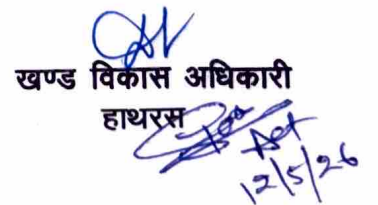 खण्ड विकास अधिकारी
हाथरस
12/5/26